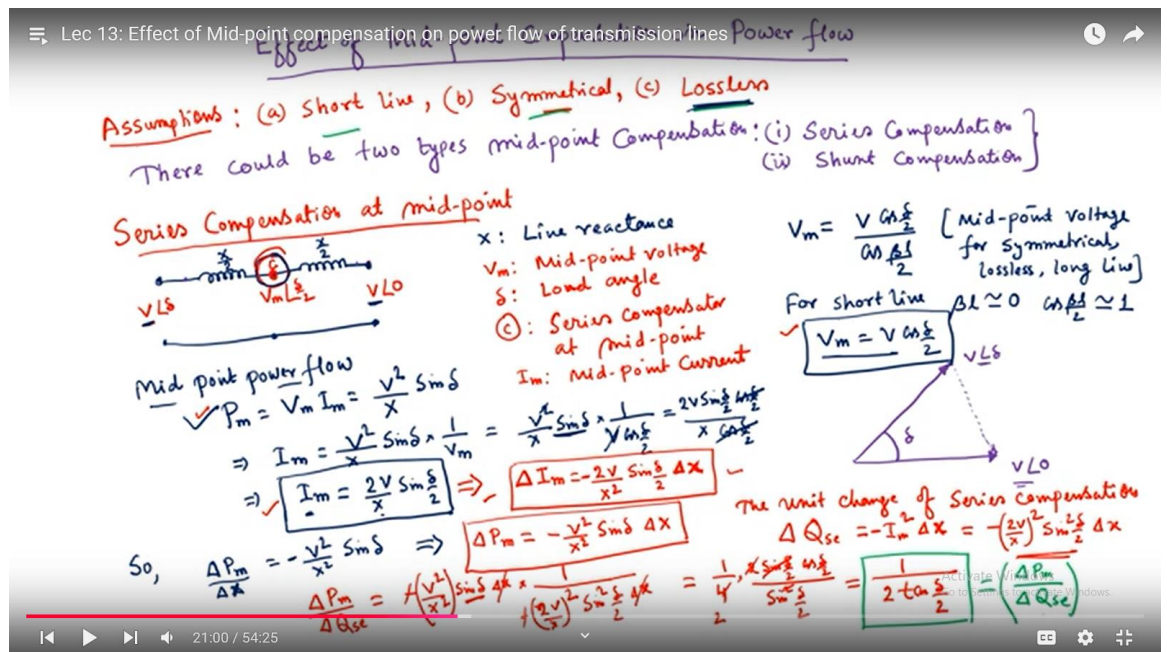 Lec 13: Effect of Mid-point compensation on power flow of transmission lines
Effect of Mid-point Compensation on Power flow
Assumptions : (a) Short line, (b) Symmetrical, (c) Lossless
There could be two types mid-point Compensation : (i) Series Compensation
(ii) Shunt Compensation
Series Compensation at mid-point
x/2 C x/2
V∠δ Vm∠δ/2 V∠0
x : Line reactance
Vm: Mid-point voltage
δ : Load angle
Ⓒ : Series compensator
at mid-point
Im: Mid-point Current
Vm = V cos δ/2 / cos βl/2 [Mid-point voltage
for symmetrical,
lossless, long line]
For short line βl ≃ 0 cos βl/2 ≃ 1
Vm = V cos δ/2
V∠δ
δ
V∠0
Mid point power flow
Pm = Vm Im = V²/x Sinδ
⇒ Im = V²/x Sinδ × 1/Vm = V²/x Sinδ × 1/(V cos δ/2) = 2V Sin δ/2 cos δ/2 / (x cos δ/2)
⇒ Im = 2V/x Sin δ/2 ⇒ ΔIm = -2V/x² Sin δ/2 Δx
So, ΔPm/Δx = - V²/x² Sinδ ⇒ ΔPm = - V²/x² Sinδ Δx
The unit change of Series compensation
ΔQse = -Im² Δx = -(2V/x)² Sin² δ/2 Δx
ΔPm/ΔQse = +(V²/x²) Sinδ Δx × 1/(+(2V/x)² Sin² δ/2 Δx) = 1/4 · 2 Sin δ/2 cos δ/2 / Sin² δ/2 = 1/(2 tan δ/2) = (ΔPm/ΔQse)
Activate Windows
Go to Settings to activate Windows.
21:00 / 54:25
CC